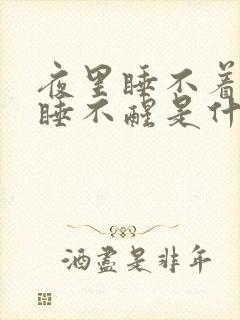 夜里睡不着
睡不醒是什
酒尽是非年